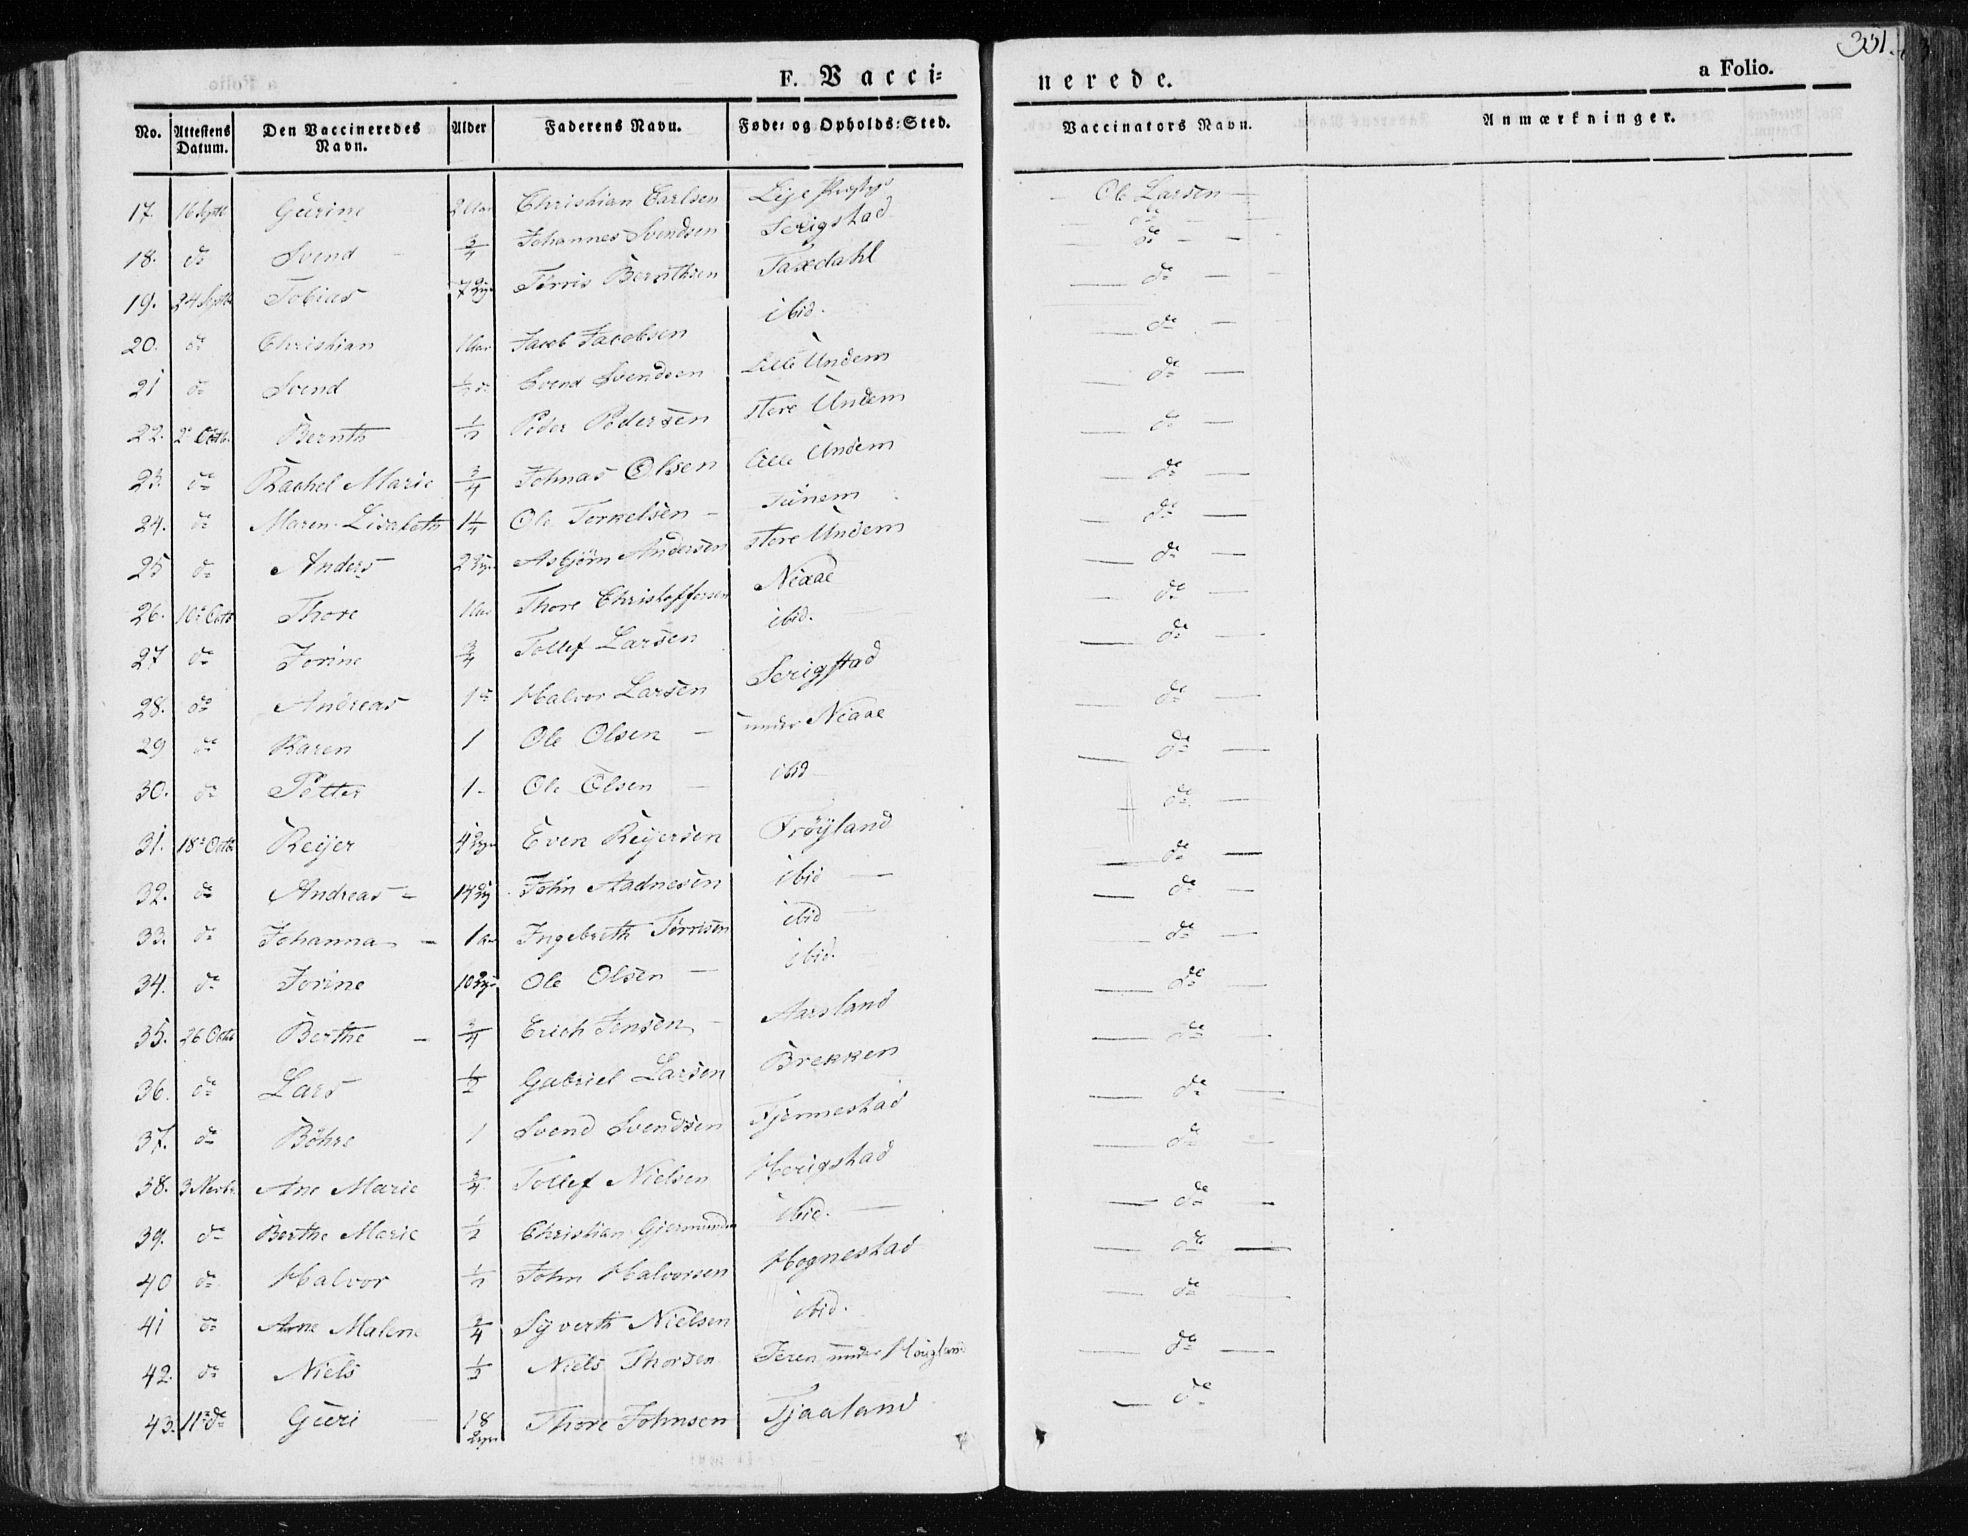 351.
F. Vacci= nerede. a Folio.
No. Attestens Datum. Den Vaccineredes Navn. Alder Faderens Navn. Føde= og Opholds=Sted. Vaccinators Navn. Anmærkninger.
17. 16 Septb Gurine 2 Aar Christian Carlsen Lÿe Ole Larsen —
18. do Svend 3/4 Johannes Svendsen Serigstad do
19. 24 Septb Tobias 7 Torris Bernthsen Taxdahl do
20. do Christian 1 Aar Jacob Jacobsen ibid. do
21 do Svend 1/2 Svend Svendsen Lille Undem do
22. 2 Octb. Bernth 1/2 Peder Pedersen store Undem do
23. do Rachel Marie 3/4 Johnas Olsen lille Undem do
24. do Maren Lisabeth 1 1/4 Ole Terkelsen — Tunem do
25 do Anders 2 Asbjørn Andersen store Undem do
26. 10 Octb Thore 1 Aar Thore Christoffersen Niaae do
27 do Jorine 3/4 Tollef Larsen ibid. do
28. do Andreas 1 Halvor Larsen Serigstad do
29 do Karen 1 Ole Olsen — under Niaae do
30. do Petter 1 — Ole Olsen — ibid do
31. 18 Octb Reijer 4 Even Reijersen Frøÿland do
32. do Andreas 14 John Aadnesen ibid do
33. do Johanna — 1 Ingebreth Torrisen ibid do
34. do Jorine 10 Ole Olsen — ibid. do
35. 26 Octb Berthe — 3/4 Erich Jensen Aarsland do
36. do Lars 1/2 Gabriel Larsen Brekken do
37. do Böhre 1 Svend Svendsen Tjemestad do
38. 3 Novbr. Ane Marie 3/4 Tollef Nielsen Herigstad do
39. do Berthe Marie 1/2 Christian Gjermundsen ibid. do
40 do Halvor 1/2 John Halvorsen Hognestad do
41 do Ane Malene 3/4 Syverth Nielsen ibid. do
42. do Niels 1/2 Niels Thorsen under Høugland do
43. 11 do Guri 18 Thore Johnsen Tjaaland do